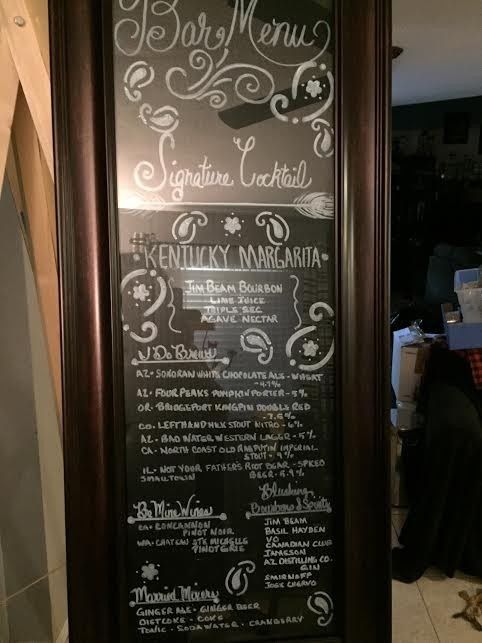 Bar Menu
Signature Cocktail
"KENTUCKY MARGARITA"
JIM BEAM BOURBON
LIME JUICE
TRIPLE SEC
AGAVE NECTAR
I Do Brews
AZ- SONORAN WHITE CHOCOLATE ALE - WHEAT
-4.7%
AZ- FOUR PEAKS PUMPKIN PORTER - 5%
OR- BRIDGEPORT KINGPIN DOUBLE RED
-7.5%
CO- LEFTHAND MILK STOUT NITRO - 6%
AZ- BAD WATER WESTERN LAGER - 5%
CA - NORTH COAST OLD RASPUTIN IMPERIAL
STOUT - 9%
IL- NOT YOUR FATHERS ROOT BEAR - SPIKED
SMALLTOWN BEER - 5.9%
Be Mine Wines
CA- CONCANNON
PINOT NOIR
WA- CHATEAU STE MICHELLE
PINOT GRIE
Blushing
Bourbons & Spirits
JIM BEAM
BASIL HAYDEN
VO
CANADIAN CLUB
JAMESON
AZ DISTILLING CO.
GIN
SMIRNOFF
JOSE CUERVO
Married Mixers
GINGER ALE - GINGER BEER
DIET COKE - COKE
TONIC - SODA WATER - CRANBERRY